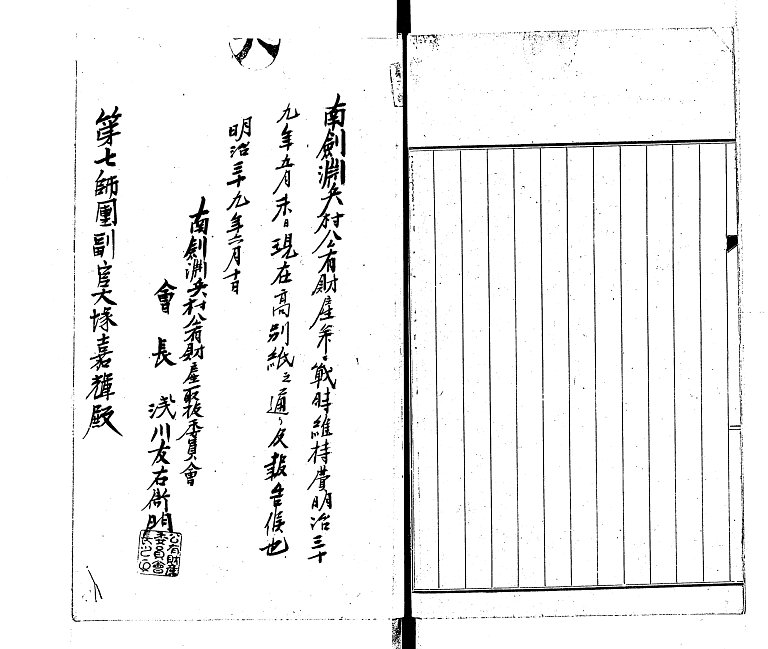 南劍淵兵村公有財産并ニ戰時維持費明治三十
九年五月末日現在高別紙之通リ及報告候也
明治三十九年六月十日
南劍淵兵村公有財産取扱委員會
會長 浅川友右衛門
公有財産
委員會
長之
第七師團副官大塚嘉輝殿